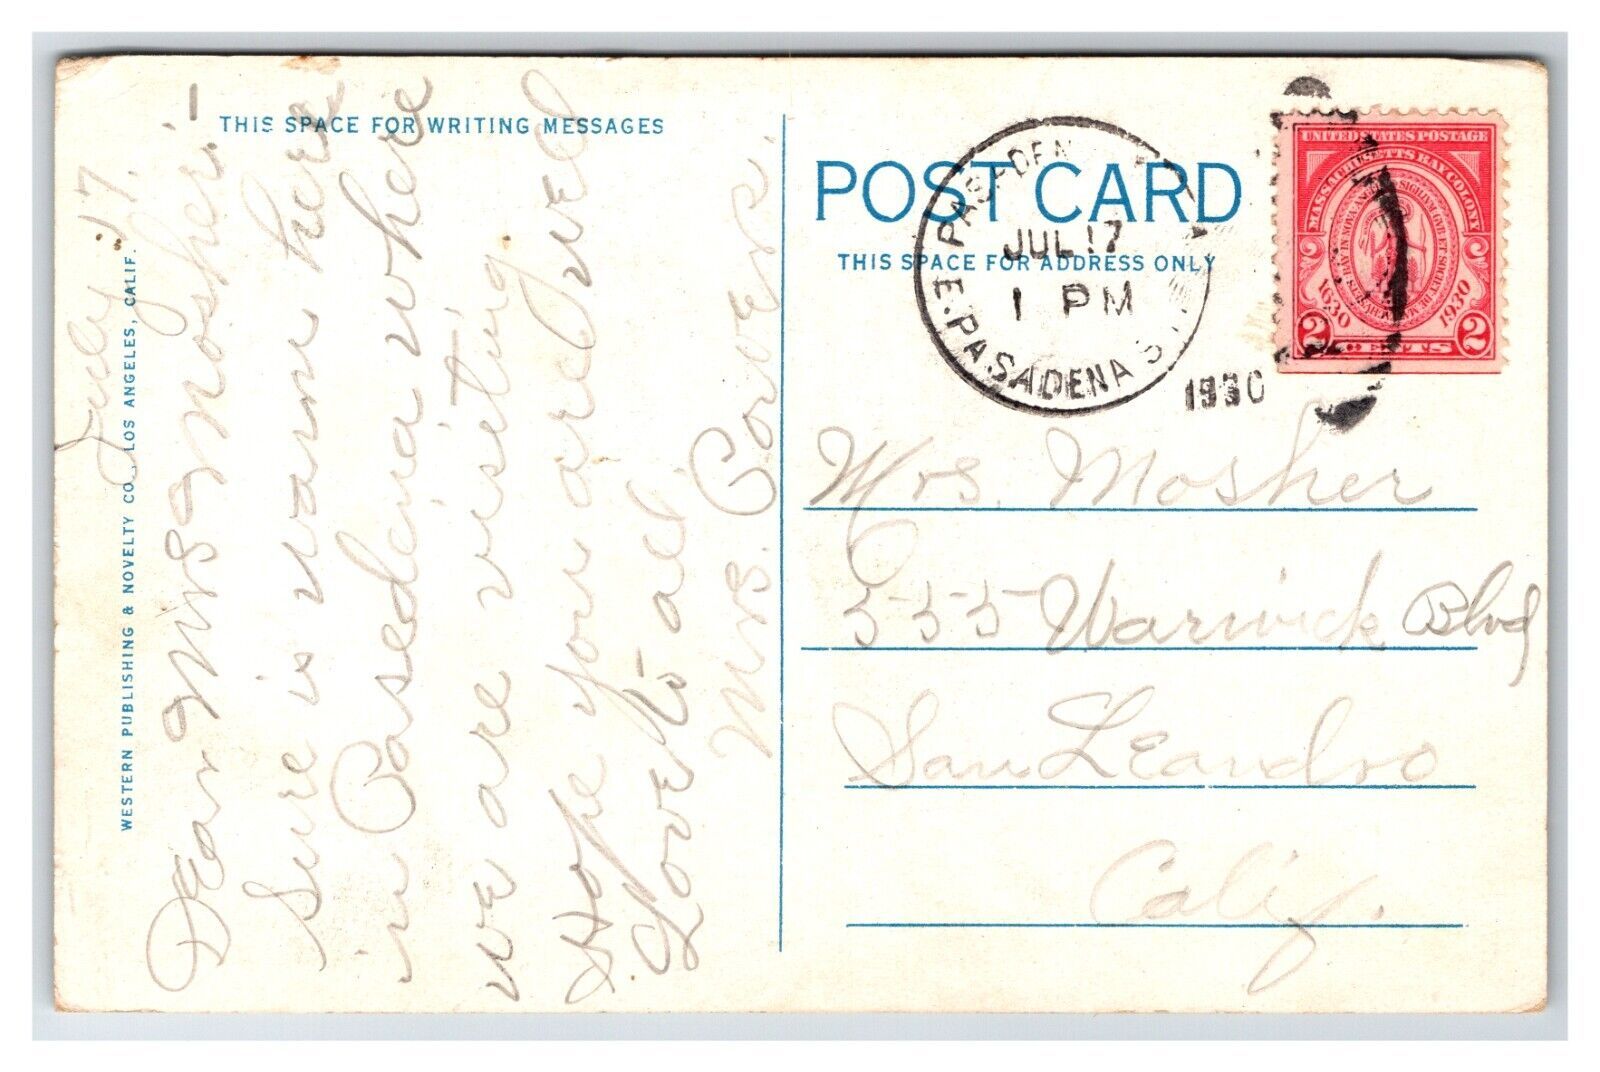 THIS SPACE FOR WRITING MESSAGES
July 17.
Dear Mrs Mosher:-
Sure is warm here
in Pasedena where
we are visiting.
Hope you are well
Love to all
Mrs. Covers.
WESTERN PUBLISHING & NOVELTY CO., LOS ANGELES, CALIF.
POST CARD
THIS SPACE FOR ADDRESS ONLY
PASADEN
JUL 17
1 PM
E. PASADENA STA
1930
UNITED STATES POSTAGE
MASSACHUSETTS BAY COLONY
1630 1930
2 CENTS 2
Mrs. Mosher
555 Warwick Blvd
San Leandro
Calif.